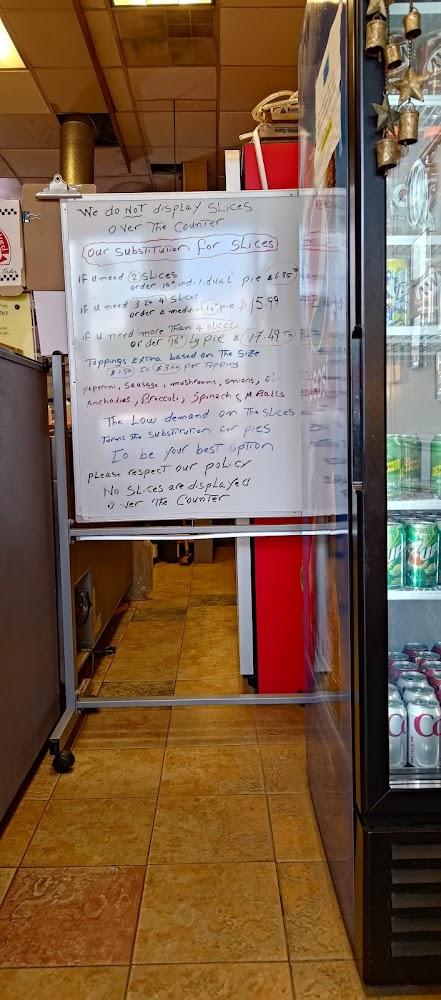 We do NOT display Slices
over The Counter
our Substitution for Slices
if u need (2) slices
order 10" individual pie $6.85
if u need 3 to 4 slices
order a medium 14" pie $ 15.99
if u need more Than 4 slices
order 16" Lg pie $ 17.49 Tx
Toppings Extra based on The Size
$1.50 to $3.00 per Topping
peperoni, Sausage, mushrooms, onions, ol
Anchovies, Broccoli, Spinach & M Balls
The Low demand on The Slices
Turns The Substitution for pies
To be your best option
please respect our policy
No Slices are displayed
over The Counter
7UP
C
Co